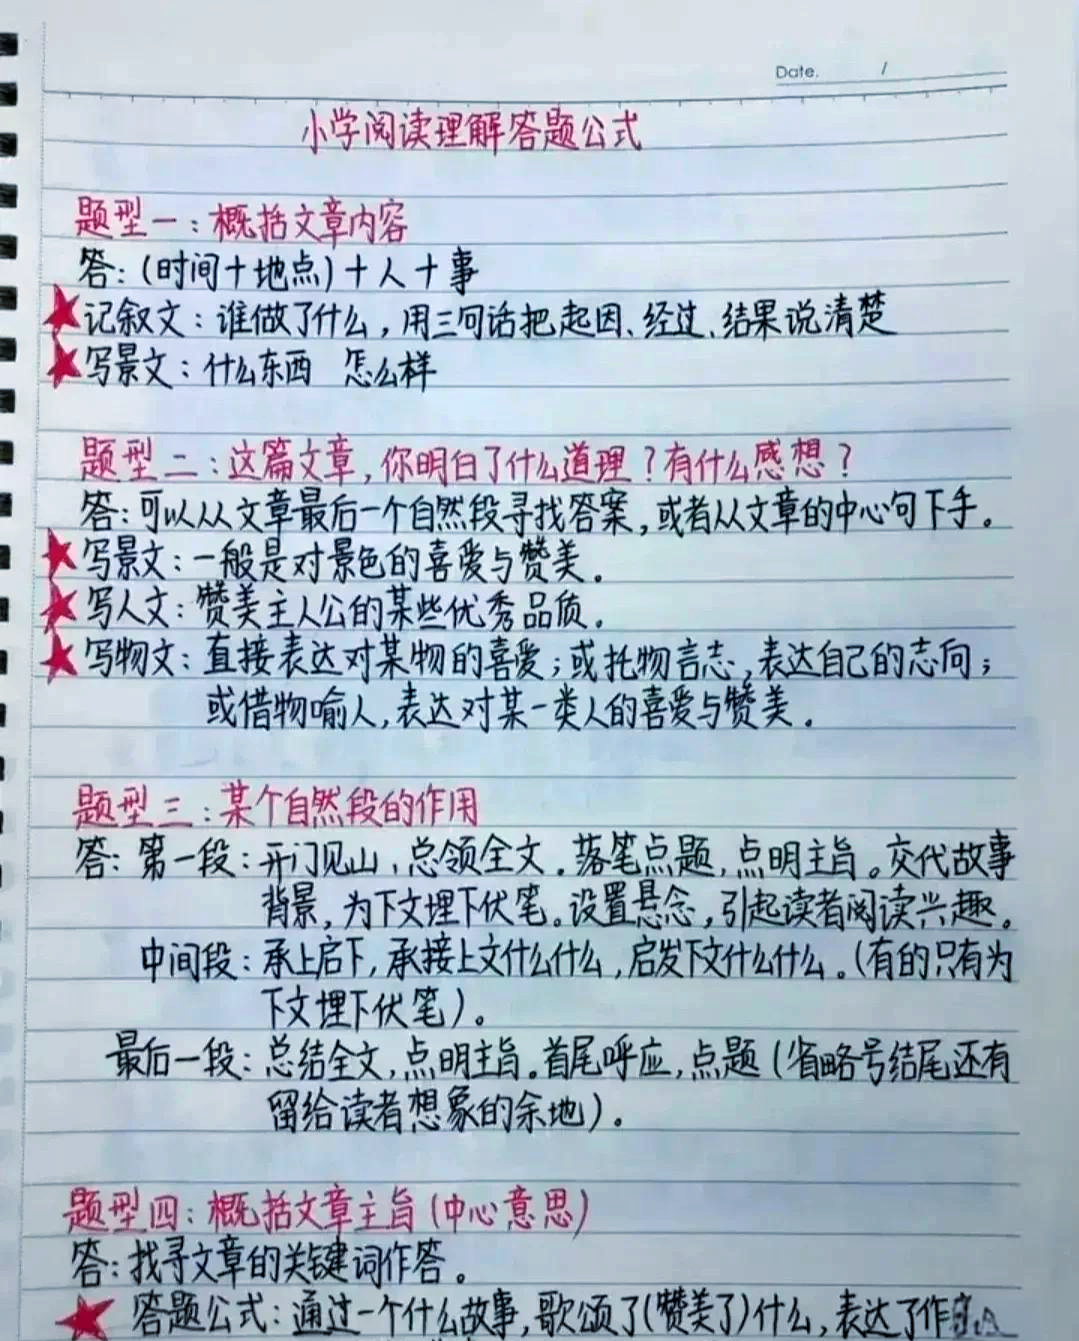 Date. /
小学阅读理解答题公式
题型一：概括文章内容
答：(时间+地点)+人+事
★记叙文：谁做了什么，用三句话把起因、经过、结果说清楚
★写景文：什么东西 怎么样
题型二：这篇文章，你明白了什么道理？有什么感想？
答：可以从从文章最后一个自然段寻找答案，或者从文章的中心句下手。
★写景文：一般是对景色的喜爱与赞美。
★写人文：赞美主人公的某些优秀品质。
★写物文：直接表达对某物的喜爱；或托物言志，表达自己的志向；
或借物喻人，表达对某一类人的喜爱与赞美。
题型三：某个自然段的作用
答：第一段：开门见山，总领全文。落笔点题，点明主旨。交代故事
背景，为下文埋下伏笔。设置悬念，引起读者阅读兴趣。
中间段：承上启下，承接上文什么什么，启发下文什么什么。(有的只有为
下文埋下伏笔)。
最后一段：总结全文，点明主旨。首尾呼应，点题(省略号结尾还有
留给读者想象的余地)。
题型四：概括文章主旨(中心意思)
答：找寻文章的关键词作答。
★答题公式：通过一个什么故事，歌颂了(赞美了)什么，表达了作